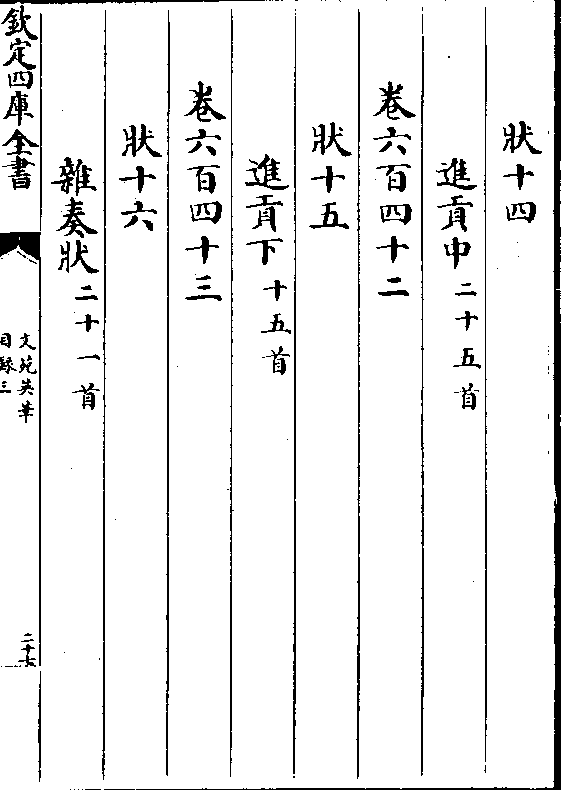 狀十四
進貢中二十五首
卷六百四十二
狀十五
進貢下十五首
卷六百四十三
狀十六
雜奏狀二十一首
欽定四庫全書
文苑英華
目錄三
二十七